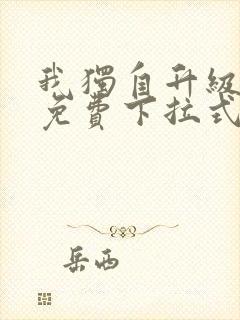 我獨自升級
免費下拉式
岳西